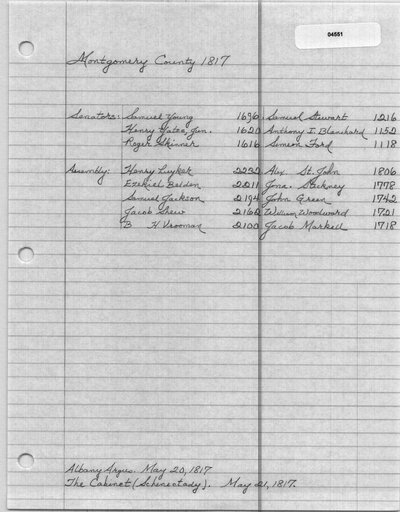 04551
Montgomery County 1817
Senators: Samuel Young 1696 Samuel Stewart 1216
Henry Yates, Jun. 1620 Anthony I. Blanchard 1152
Roger Skinner 1616 Simeon Ford 1118
Assembly: Henry Lyker 2232 Alex St. John 1806
Ezekiel Belden 2211 Jona. Stickney 1778
Samuel Jackson 2194 John Green 1742
Jacob Shew 2162 William Woodward 1721
B H Vrooman 2100 Jacob Markell 1718
Albany Argus. May 20, 1817
The Cabinet (Schenectady). May 21, 1817.